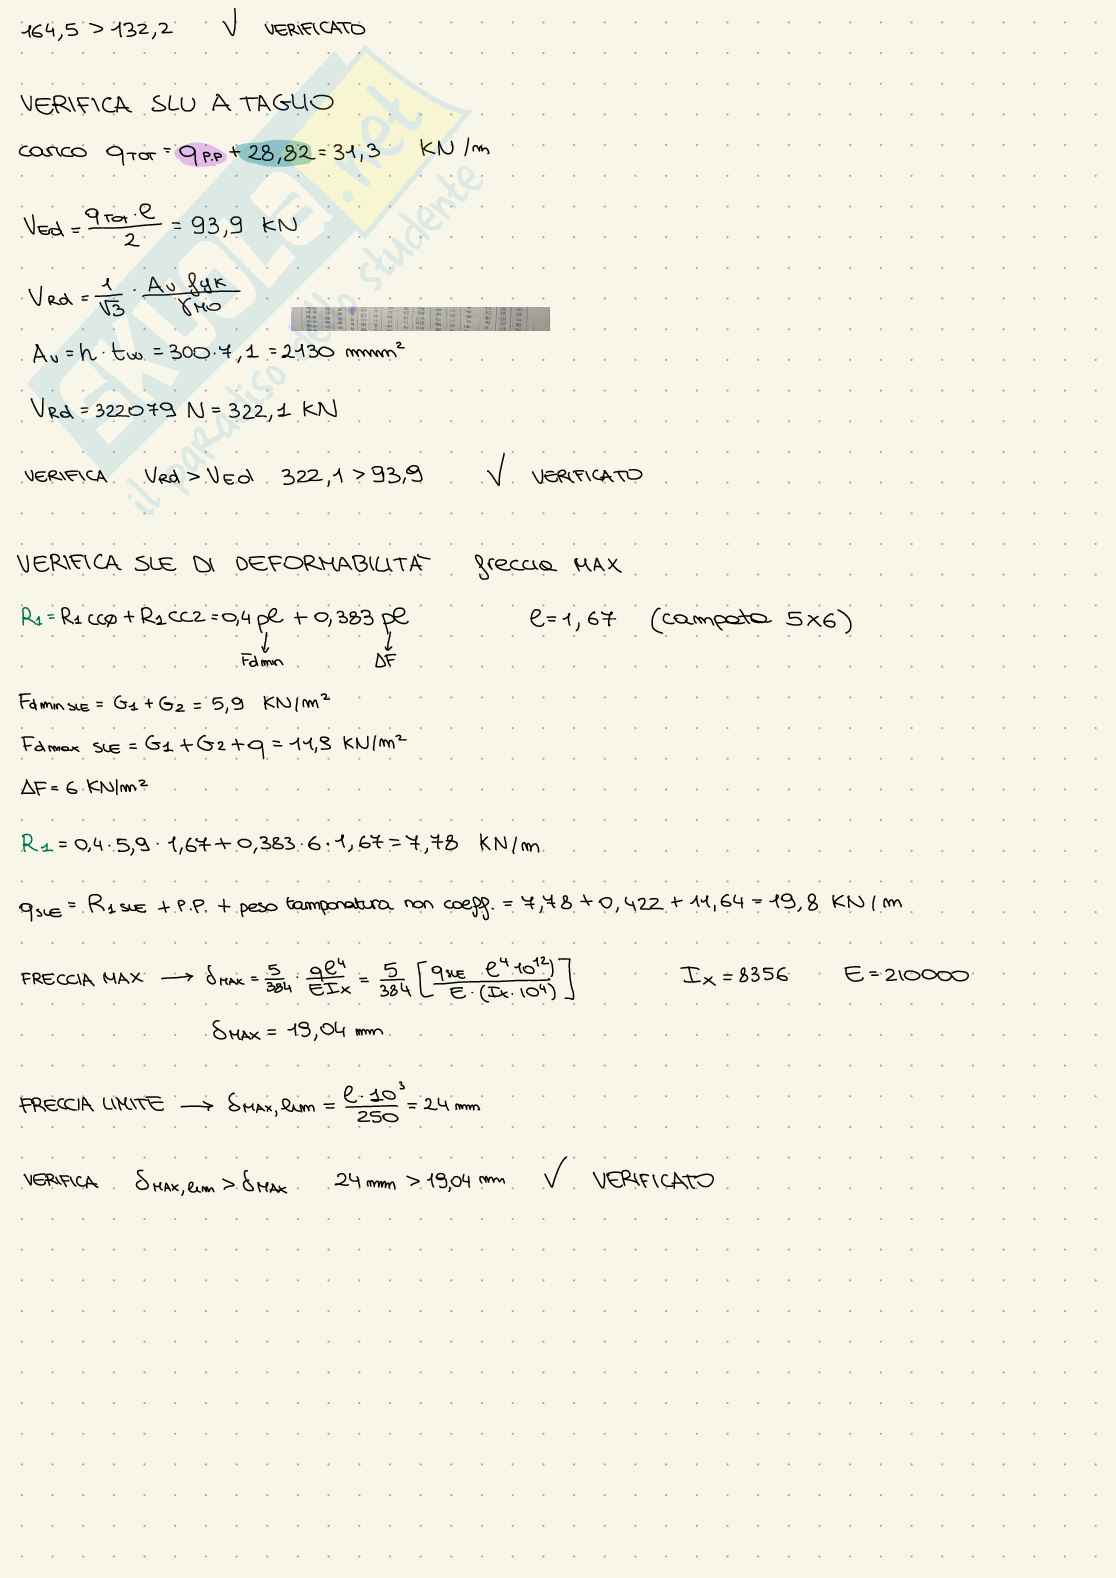 164,5 > 132,2 √ VERIFICATO
VERIFICA SLU A TAGLIO
carico qTOT = qP.P + 28,82 = 31,3 KN/m
VEd = qTOT · l / 2 = 93,9 KN
VRd = 1/√3 · Av fyk / γM0
Av = h · tw = 300 · 7,1 = 2130 mm²
VRd = 322079 N = 322,1 KN
VERIFICA VRd > VEd 322,1 > 93,9 √ VERIFICATO
VERIFICA SLE DI DEFORMABILITÀ freccia MAX
R1 = R1 CCØ + R1 CC2 = 0,4 pl + 0,383 pl l = 1,67 (campata 5x6)
↓ ↓
Fdmin ΔF
Fdmin SLE = G1 + G2 = 5,9 KN/m²
Fdmax SLE = G1 + G2 + q = 11,9 KN/m²
ΔF = 6 KN/m²
R1 = 0,4 · 5,9 · 1,67 + 0,383 · 6 · 1,67 = 7,78 KN/m
qSLE = R1 SLE + P.P. + peso tamponatura non coeff. = 7,78 + 0,422 + 11,64 = 19,8 KN/m
FRECCIA MAX → δMAX = 5/384 · ql⁴/EIx = 5/384 [qSLE l⁴·10¹²) / E·(Ix·10⁴)] Ix = 8356 E = 210000
δMAX = 19,04 mm
FRECCIA LIMITE → δMAX, lim = l · 10³ / 250 = 24 mm
VERIFICA δMAX, lim > δMAX 24 mm > 19,04 mm √ VERIFICATO
SKUOLA.net
il paradiso dello studente